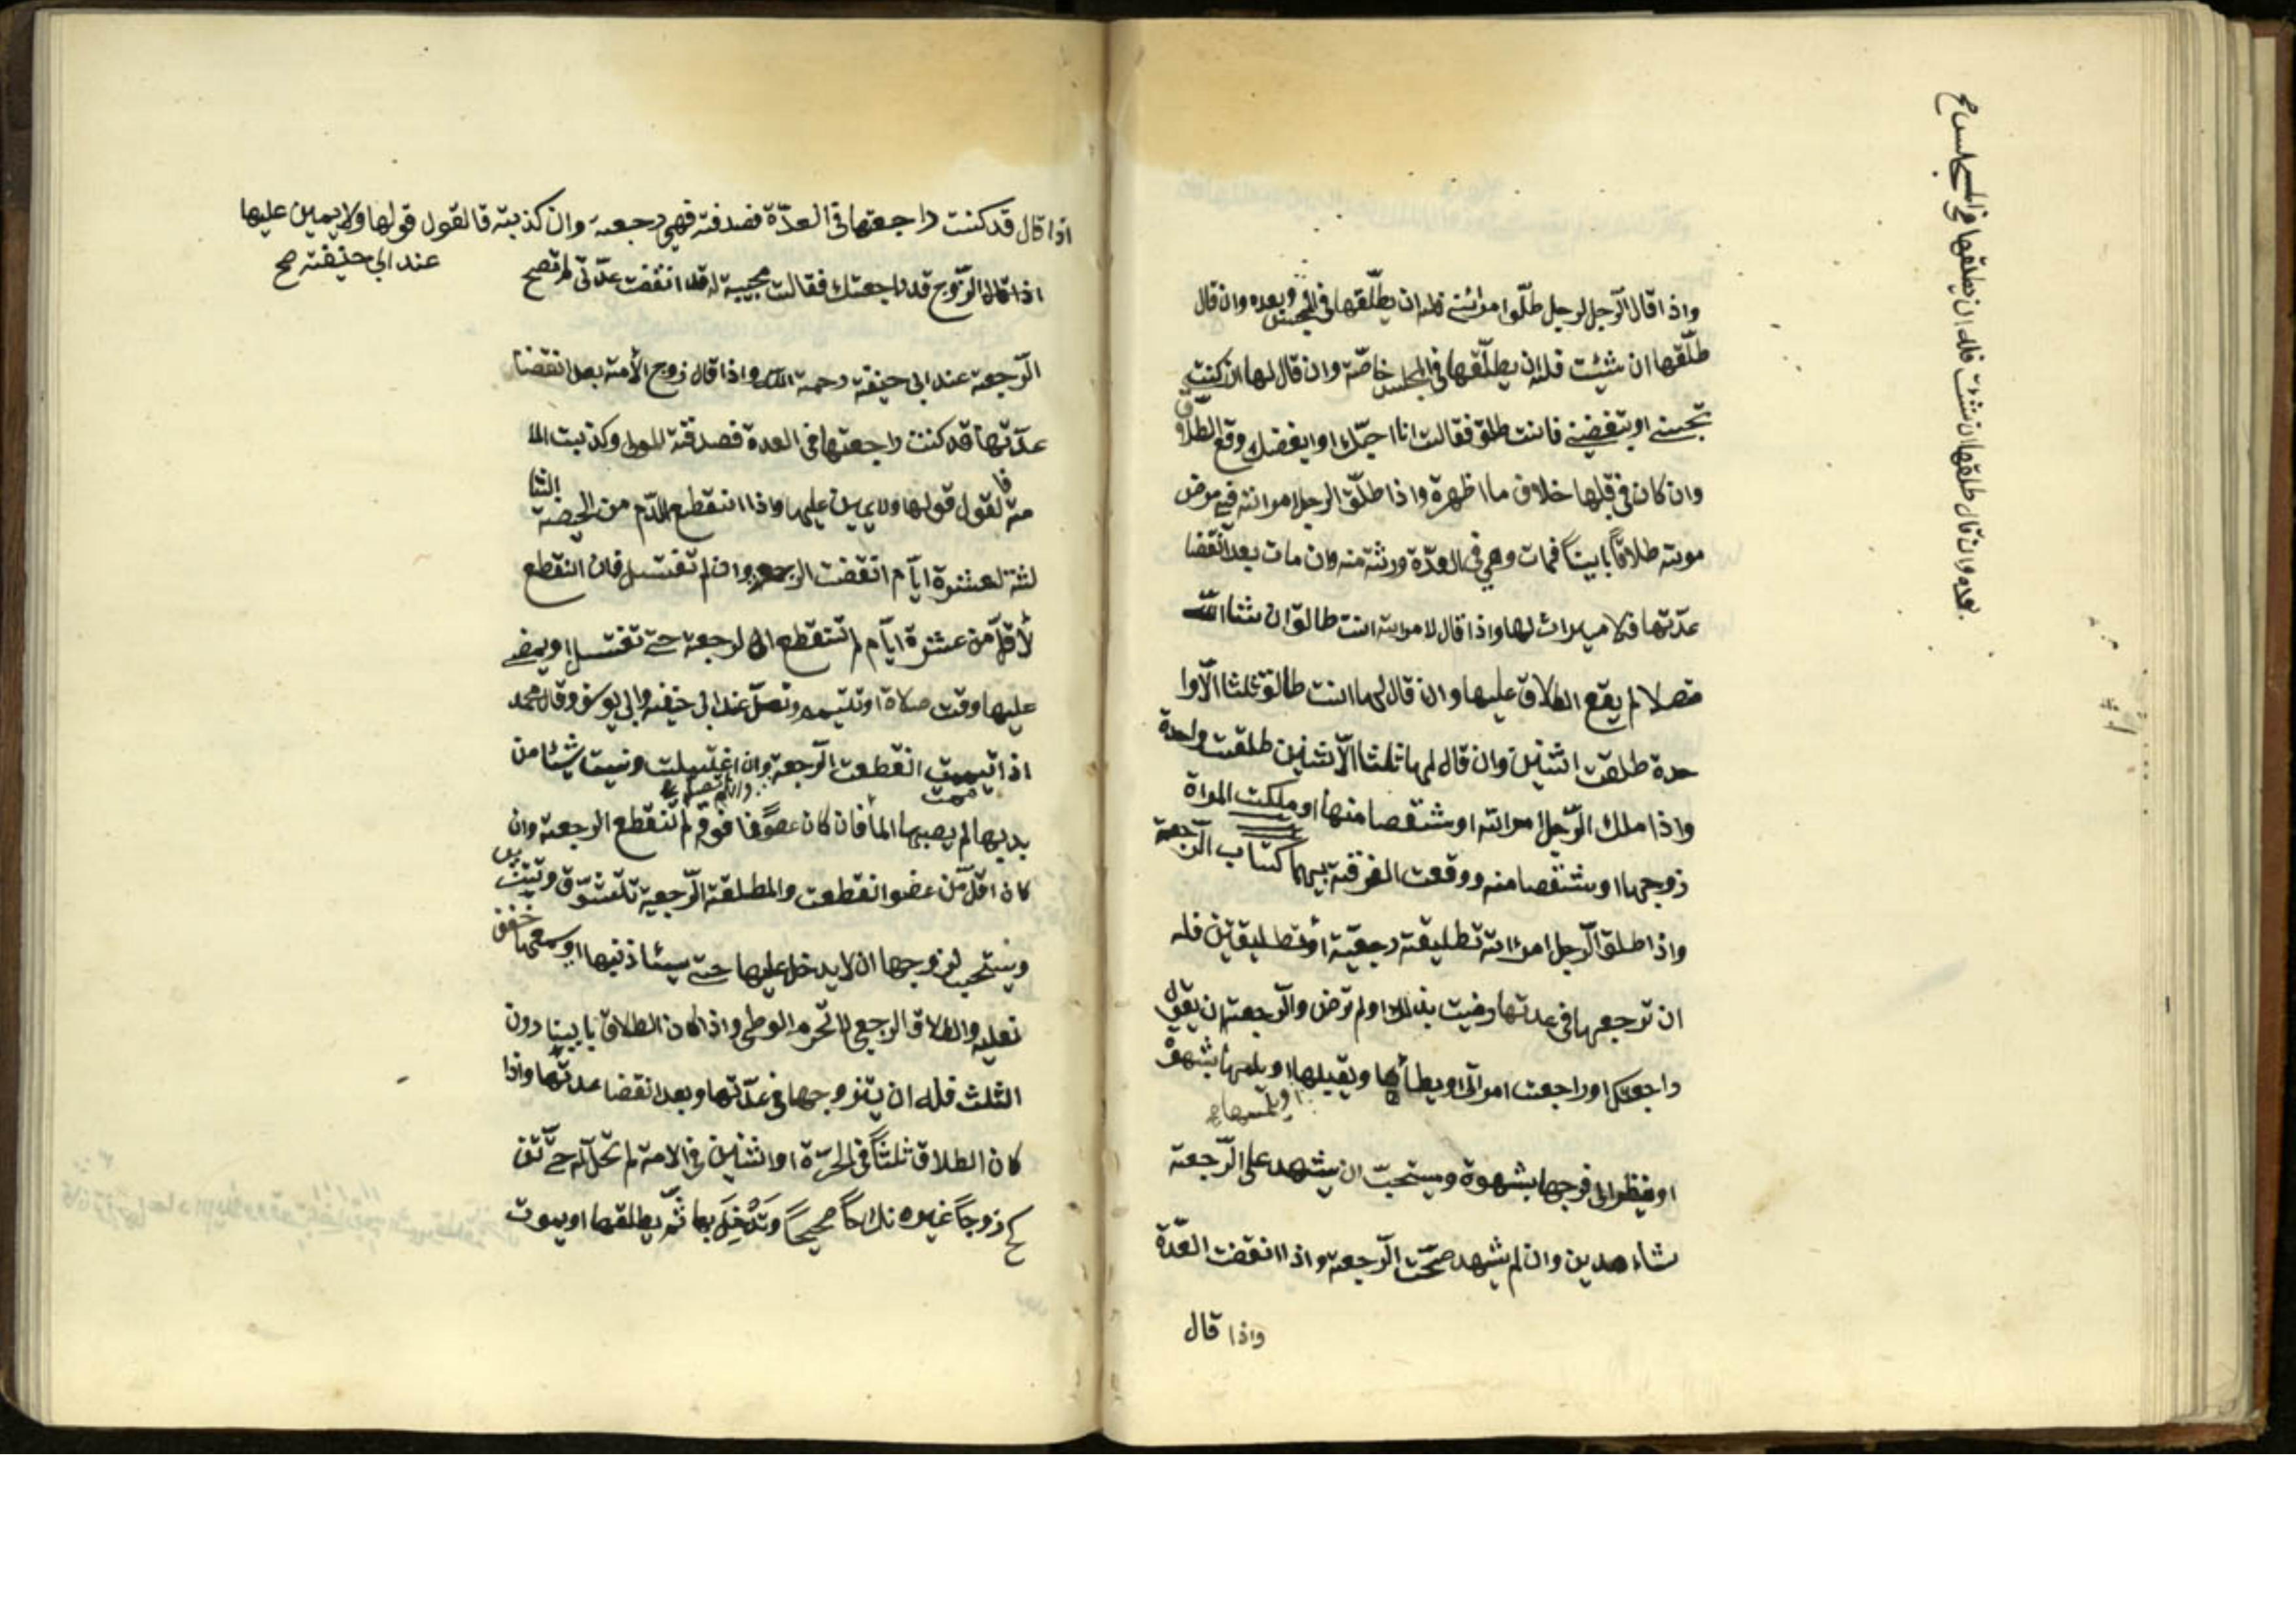 واذا قال الرجل لرجل طلّق امرأتي فله ان يطلّقها في المجلس وبعده وان قال
طلّقها ان شئت فله ان يطلّقها في المجلس خاصّة وان قال لها ان كنت
تحبني او تبغضيني فانت طلق فقالت انا احبّك او ابغضك وقع الطلاق
وان كان في قلبها خلاف ما اظهرة واذا طلّق الرجل امراته في مرض
موته طلاقاً بايناً فمات وهي في العدّة ورثته منه وان مات بعد انقضا
عدّتها فلا ميراث لها واذا قال لامراته انت طالق ان شا الله
متصلا لم يقع الطلاق عليها وان قال لها انت طالق ثلثا الّا وا
حدة طلقت اثنين وان قال لها ثلثا الّا ثنين طلقت واحدة
واذا ملك الرّجل امراته او شقصا منها او ملكت المراة
زوجها او شقصا منه ووقعت الفرقة بينهما كتاب الرجعة
واذا طلق الرجل امراته تطليقة رجعيّة أو تطليقتين فله
ان ترجعها في عدتها رضيت بذلك او لم ترض والرجعة ان يقول
راجعتك او راجعت امرأتي او يطأها ويقبلها او بلمسها بشهوة
او يلمسها صح
او ينظر الى فرجها بشهوة ويستحبّ ان يشهد على الرّجعة
شاهدين وان لم يشهد صحّت الرّجعة واذا انقضت العدّة
واذا قال
بعده وان قال طلقها ان شئت فله ان يطلقها في المجلس صح
اذا قال قد كنت راجعتها في العدّة فصدقته فهي رجعة وان كذبته فالقول قولها ولا يمين عليها
عند ابي حنيفة صح
اذا قال الزّوج قد راجعتك فقالت مجيبة له قد انقضت عدّتي لم تصح
الرّجعة عند ابي حنيفة رحمة الله واذا قال زوج الأمة بعد انقضا
عدّتها قد كنت راجعتها في العدة فصدقته المولى وكذبت الا
مة فالقول قولها ولا يمين عليها واذا انقطع الدّم من الحيضة الثا
لثة لعشرة ايّام انقضت الرجعة وان لم تغتسل فان انقطع
لأقلّ من عشرة ايّام لم تنقطع الرجعة حتى تغتسل او يمضي
عليها وقت صلاة او تتيمم وتصلّ عند ابي حنيفة وابي يوسف وقال محمد
اذا تيممت انقطعت الرّجعة وان اغتسلت ونسيت شيئا من
بدنها لم يصبها الما فان كان عضوًا فما فوقه لم تنقطع الرجعة وان
كان اقلّ من عضو انقطعت والمطلقة الرّجعية تتشوّق وتتزين
ويستحب لزوجها ان لا يدخل عليها حتى يستاذنها او يسمعها خفق
نعليه والطلاق الرجعي لا تحرم الوطي واذا كان الطلاق بايينا دون
الثلث فله ان يتزوجها في عدّتها وبعد انقضا عدتها واذا
كان الطلاق ثلثاً في الحرّة او اثنين في الامة لم تحلّ له حتّى تن
كح زوجاً غيره نكاحاً صحيحاً ويدخل بها ثمّ يطلقها او يموت